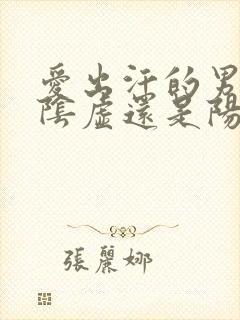 愛出汗的男
陰虛還是陽
張麗娜